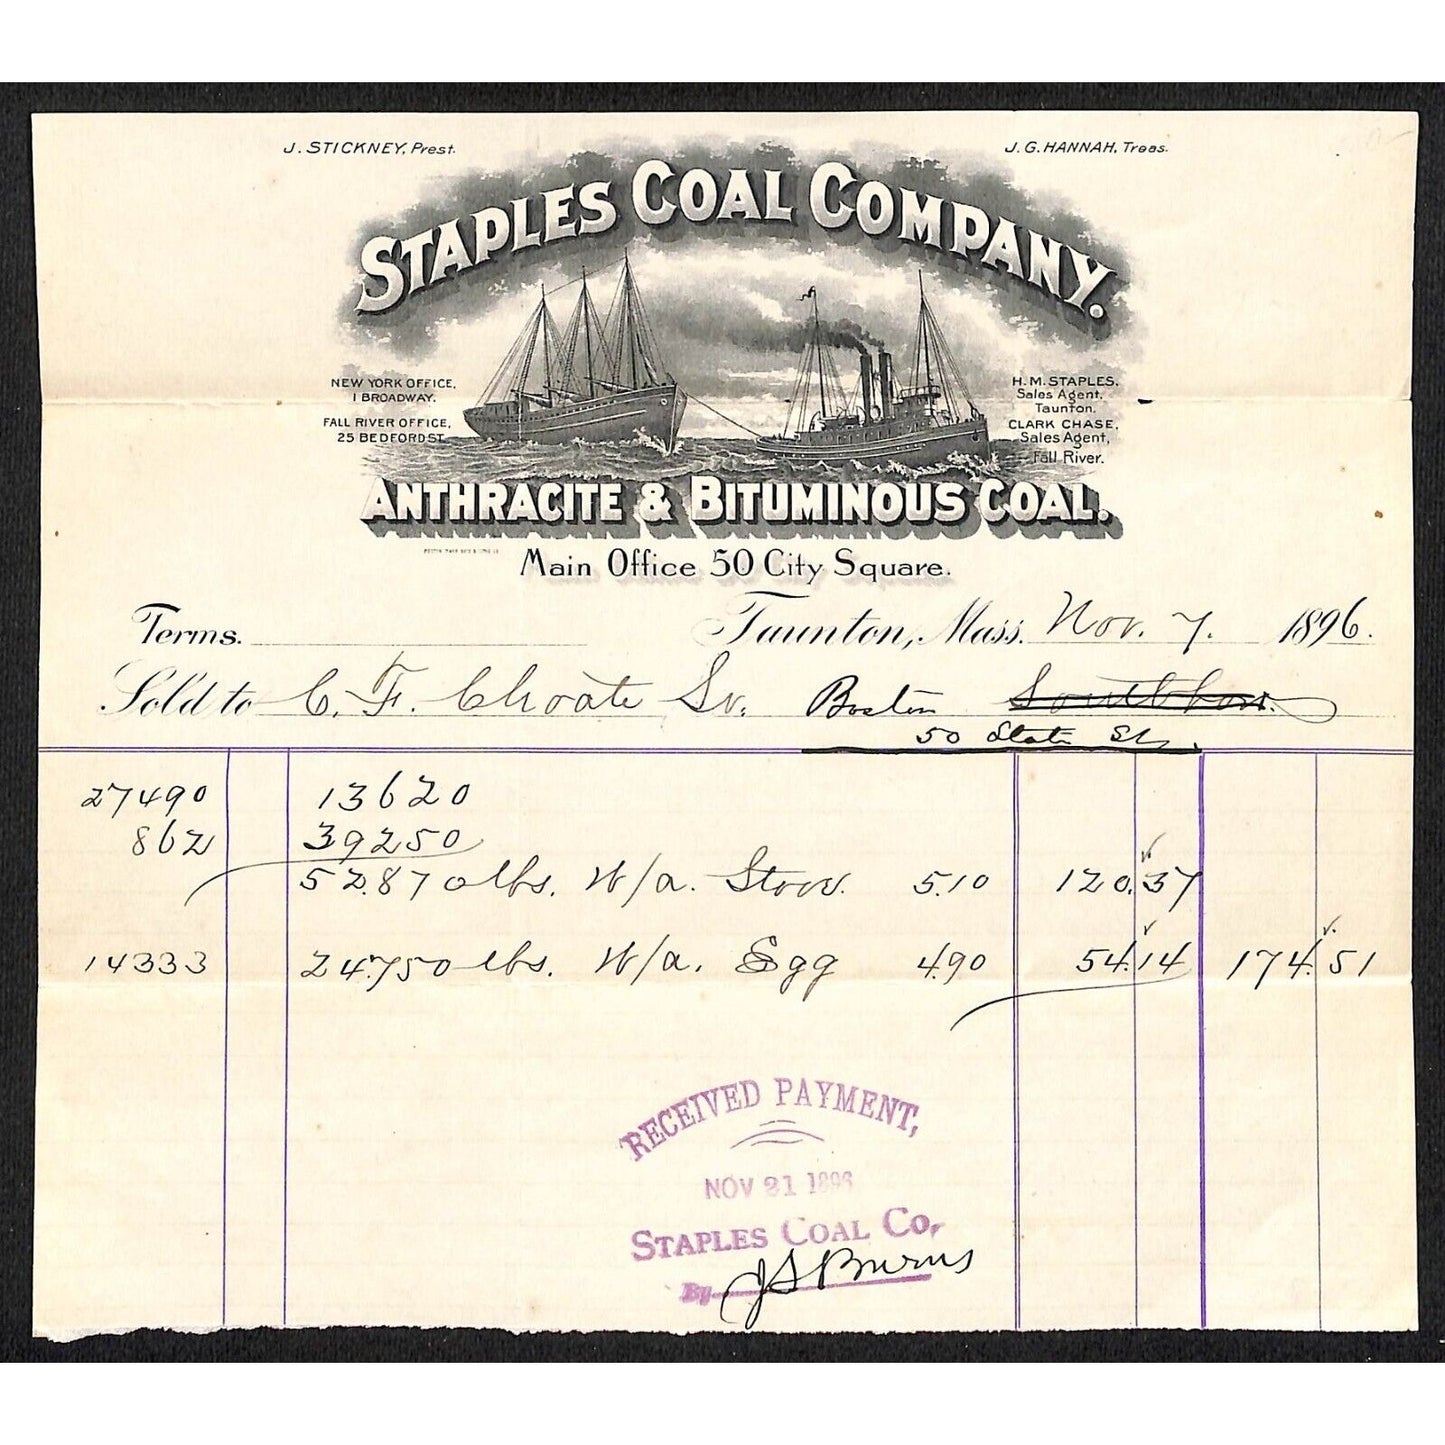 J. STICKNEY, Prest.
J. G. HANNAH, Treas.
STAPLES COAL COMPANY.
NEW YORK OFFICE,
1 BROADWAY.
FALL RIVER OFFICE,
25 BEDFORD ST.
H. M. STAPLES,
Sales Agent,
Taunton.
CLARK CHASE,
Sales Agent,
Fall River.
ANTHRACITE & BITUMINOUS COAL.
Main Office 50 City Square.
Terms. Taunton, Mass. Nov. 7. 1896.
Sold to C. F. Choate Sr. Boston
50 State St.
27490 13620
862 39250
52.870 lbs. W/a. Stove. 5.10 120.37
14333 24.750 lbs. W/a. Egg 4.90 54.14 174.51
RECEIVED PAYMENT,
NOV 21 1896
STAPLES COAL CO.
By J S Burns